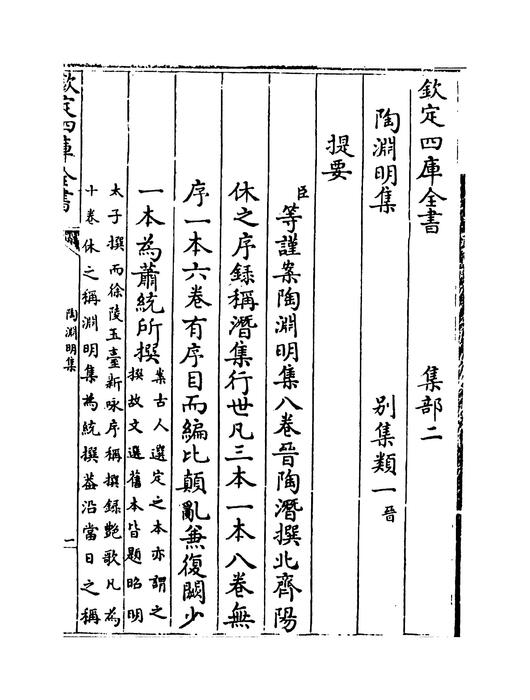 欽定四庫全書 集部二
陶淵明集 別集類一晉
提要
臣等謹案陶淵明集八卷晉陶潛撰北齊陽
休之序録稱潛集行世凡三本一本八卷無
序一本六卷有序目而編比顛亂兼復闕少
一本為蕭統所撰案古人選定之本亦謂之
撰故文選舊本皆題昭明
太子撰而徐陵玉臺新咏序稱撰録艶歌凡為
十卷休之稱淵明集為統撰葢沿當日之稱
欽定四庫全書 陶淵明集 一